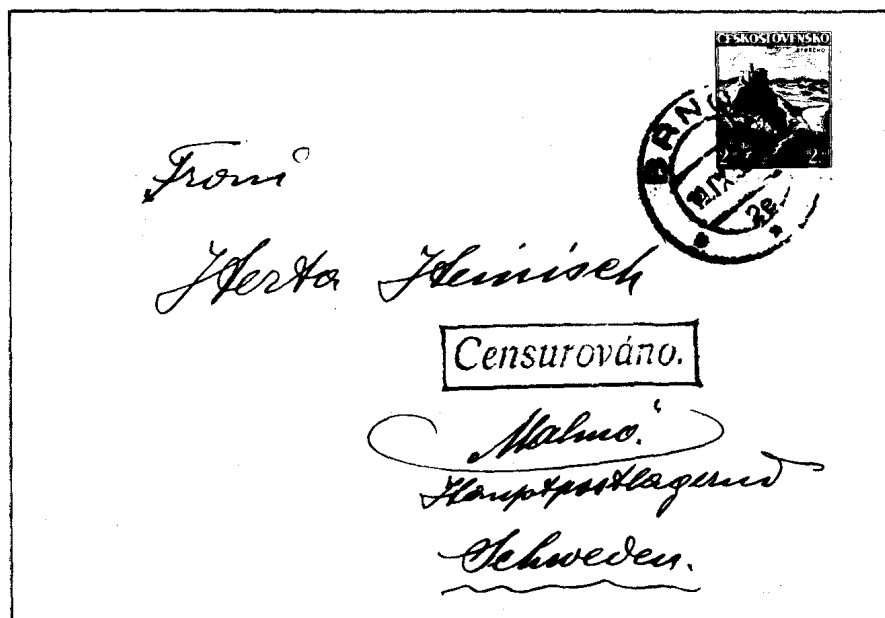 ČESKOSLOVENSKO
STREČNO
BRNO
2
2
Froni
Herta Heinisch
Censurováno.
Malmö.
Hauptpostlagernd
Schweden.